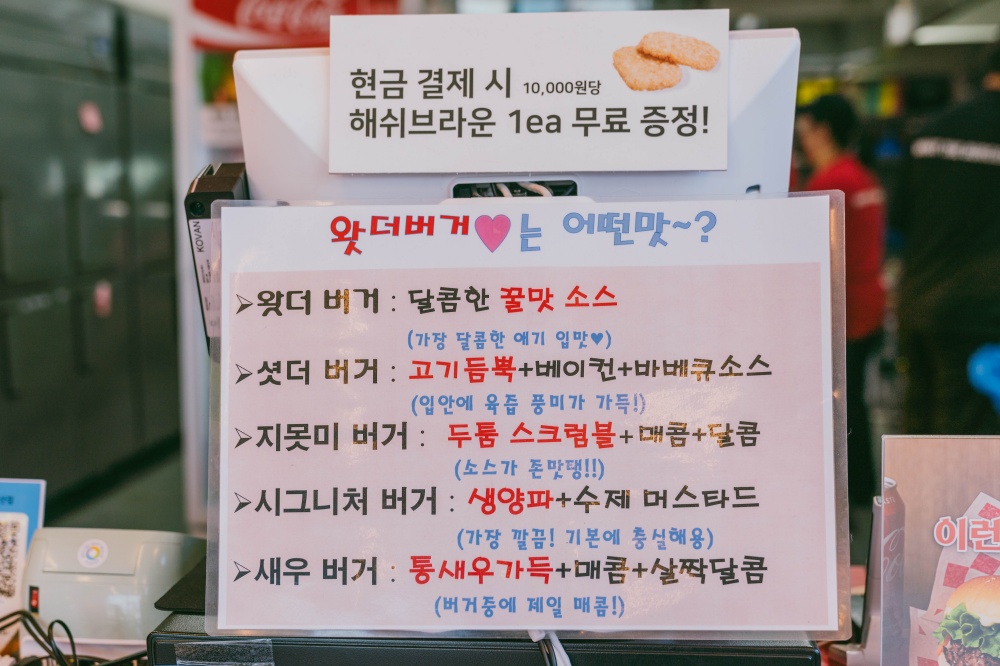 Coca-Cola
현금 결제 시 10,000원당
해쉬브라운 1ea 무료 증정!
KOVAN
왓더버거♥는 어떤맛~?
➢왓더 버거 : 달콤한 꿀맛 소스
(가장 달콤한 애기 입맛♥)
➢셧더 버거 : 고기듬뿍+베이컨+바베큐소스
(입안에 육즙 풍미가 가득!)
➢지못미 버거 : 두툼 스크럼블+매콤+달콤
(소스가 존맛탱!!)
➢시그니처 버거 : 생양파+수제 머스타드
(가장 깔끔! 기본에 충실해용)
➢새우 버거 : 통새우가득+매콤+살짝달콤
(버거중에 제일 매콤!)
이런